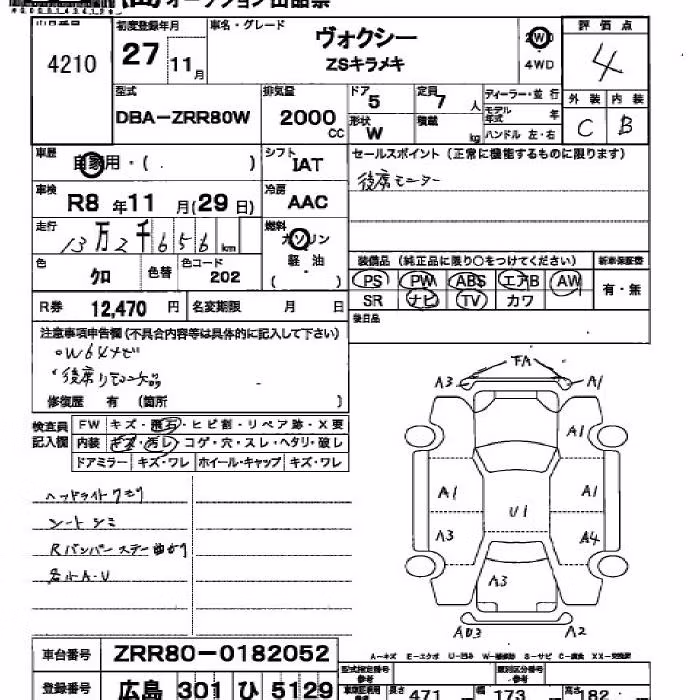 4210
初度登録年月
27 11月
車名・グレード
ヴォクシー
ZSキラメキ
2WD
4WD
評価点
4
外装 内装
C B
型式
DBA-ZRR80W
排気量
2000 CC
ドア
5
形状
W
定員
7 人
積載
kg
ディーラー・並行
モデル年式 年
ハンドル 左・右
車歴
自家用・( )
シフト
IAT
セールスポイント (正常に機能するものに限ります)
後席モニター
車検
R8 年 11 月(29 日)
冷房
AAC
走行
13万2千656 km
燃料
ガソリン
軽油
( )
色
クロ
色替
色コード
202
装備品 (純正品に限り〇をつけてください)
新車保証書
PS PW ABS エアB AW
有・無
SR ナビ TV カワ
後日品
R券 12,470 円 名変期限 月 日
注意事項申告欄 (不具合内容等は具体的に記入して下さい)
修復歴 有 (箇所 )
検査員記入欄
FW キズ・飛石・ヒビ割・リペア跡・X要
内装 キズ・汚レ・コゲ・穴・スレ・ヘタリ・破レ
ドアミラー キズ・ワレ ホイール・キャップ キズ・ワレ
ヘッドライトクモリ
シートシミ
Rバンパーステー曲がり
各小A・U
A3 A1
A1
A1 A1
U1
A3 A4
A3
A2
車台番号 ZRR80-0182052
登録番号 広島 301 ひ 5129
A-キズ E-エクボ U-凹み W-補修跡 S-サビ C-腐食 XX-交換歴
型式指定番号
参考
類別区分番号
参考
長さ 471 幅 173 高さ 182